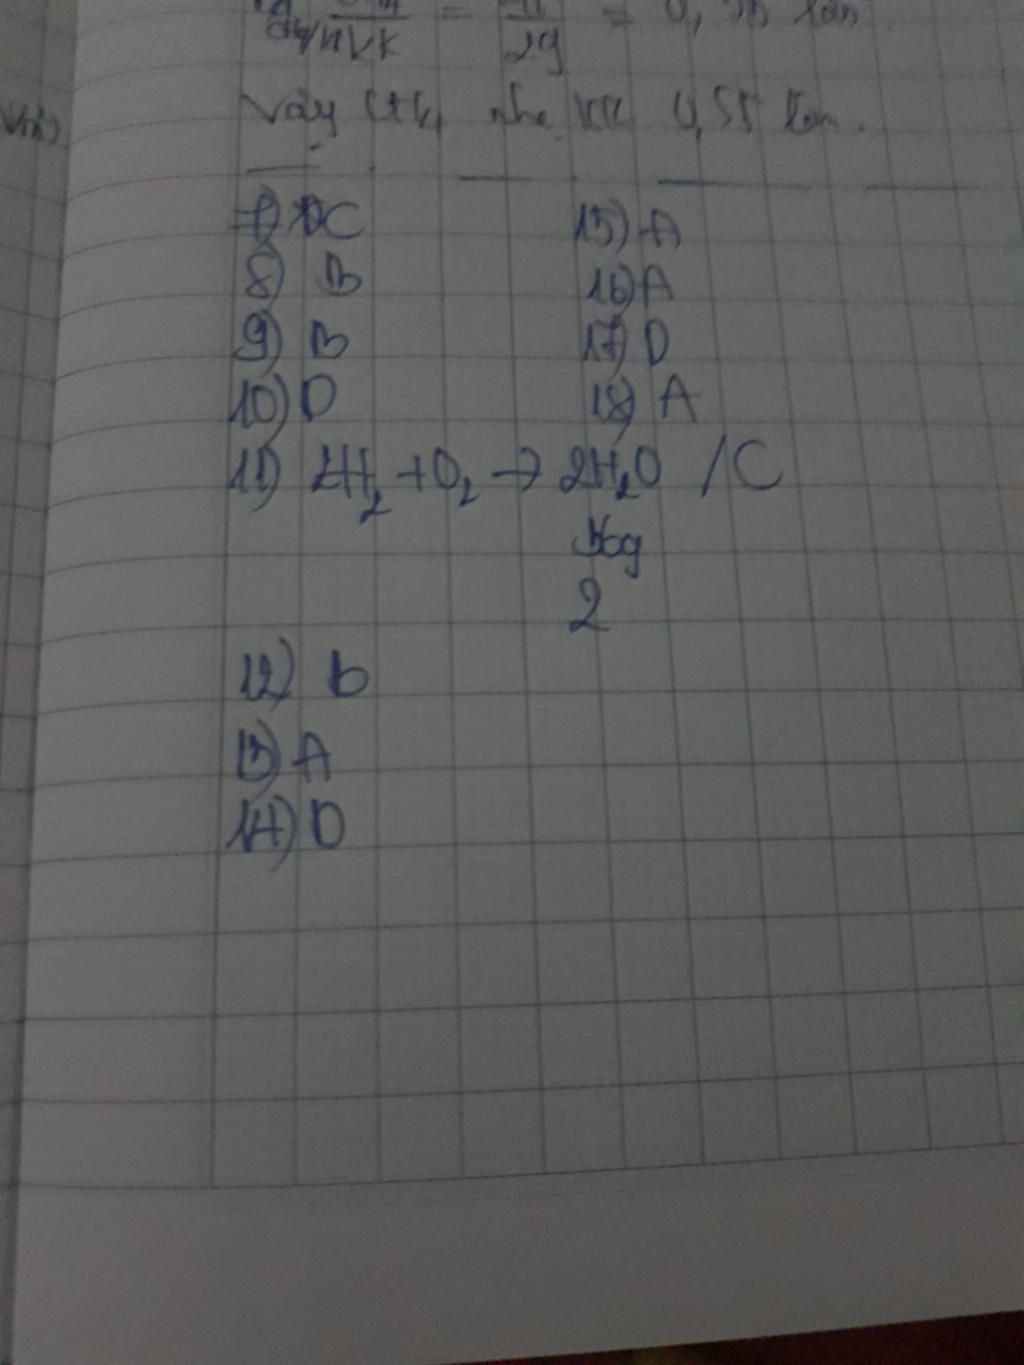 CH4/KK = 29 = 0,55 lần
Vậy CH4 nhẹ KK 0,55 lần.
7) C
8) B
9) B
10) D
11) 2H2 + O2 → 2H2O / C
2
12) b
13) A
14) D
15) A
16) A
17) D
18) A